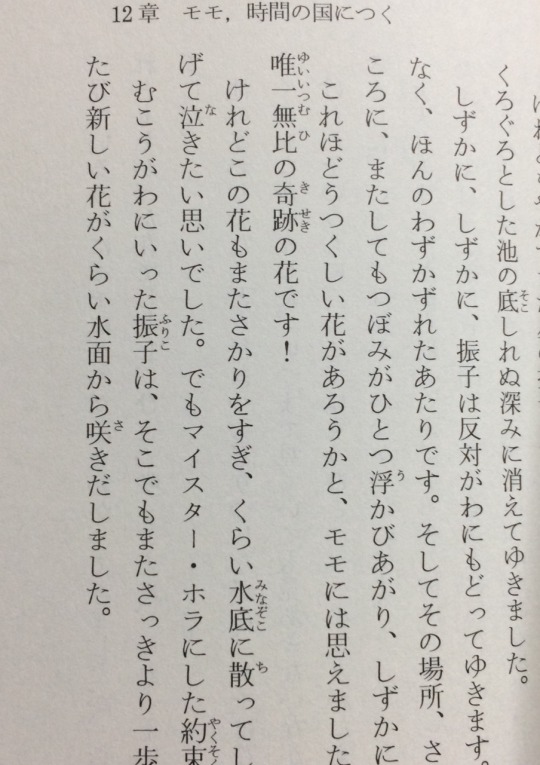 12章　モモ，時間の国につく
くろぐろとした池の底しれぬ深みに消えてゆきました。
しずかに、しずかに、振子は反対がわにもどってゆきます。
なく、ほんのわずかずれたあたりです。そしてその場所、さ
ころに、またしてもつぼみがひとつ浮かびあがり、しずかに
これほどうつくしい花があろうかと、モモには思えました
唯一無比の奇跡の花です！
けれどこの花もまたさかりをすぎ、くらい水底に散ってし
げて泣きたい思いでした。でもマイスター・ホラにした約束
むこうがわにいった振子は、そこでもまたさっきより一歩
たび新しい花がくらい水面から咲きだしました。